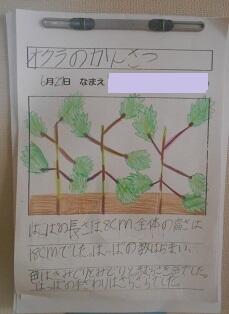 オクラのかんさつ
6月21日 なまえ
はっぱの長さは8cm全体の高さは
18cmでした。はっぱの数は5まい、
色はきみどりとみどりと
でした。
はっぱのさわりはさらさらでした。